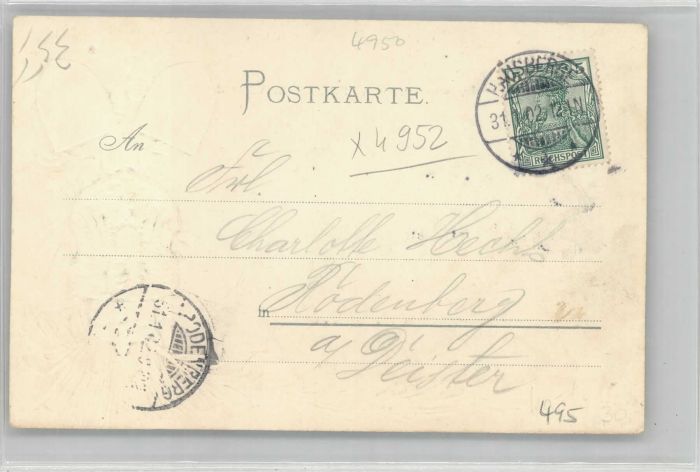 4950
POSTKARTE.
5
31. 1. 02. 12-1N
REICHSPOST
x 4952
An
Frl.
Charlotte Hecht
in Rodenberg
a/ Deister
RODENBERG
31.1.02
495